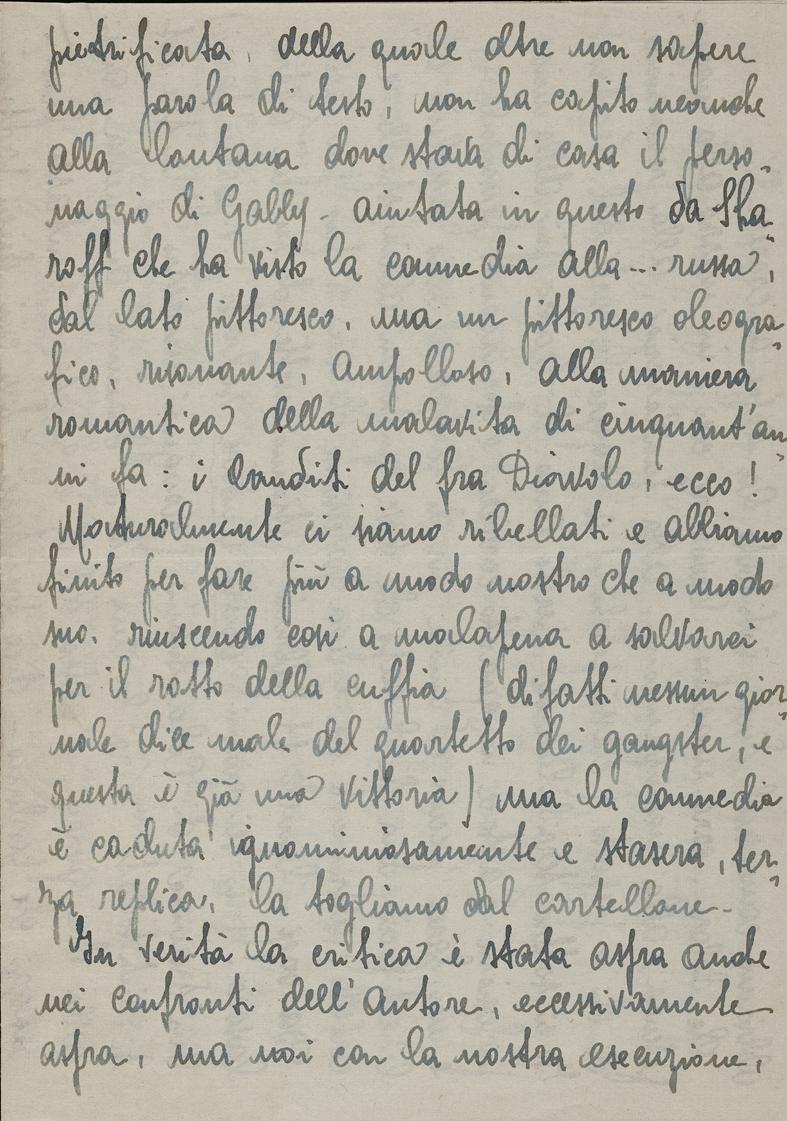 pietrificata, della quale oltre non sapere
una parola di testo, non ha capito neanche
alla lontana dove stava di casa il perso-
naggio di Gabby - aiutata in questo da Sha-
roff che ha visto la commedia alla... russa,
dal lato pittoresco, ma un pittoresco oleogra-
fico, risonante, ampolloso, alla maniera
romantica della malavita di cinquant'an-
ni fa: i banditi del fra Diavolo, ecco!
Naturalmente ci siamo ribellati e abbiamo
finito per fare più a modo nostro che a modo
suo, riuscendo così a malapena a salvarci
per il rotto della cuffia (difatti nessun gior-
nale dice male del quartetto dei gangster, e
questa è già una vittoria) ma la commedia
è caduta ignominiosamente e stasera, ter-
za replica, la togliamo dal cartellone -
In verità la critica è stata aspra anche
nei confronti dell'autore, eccessivamente
aspra, ma noi con la nostra esecuzione,